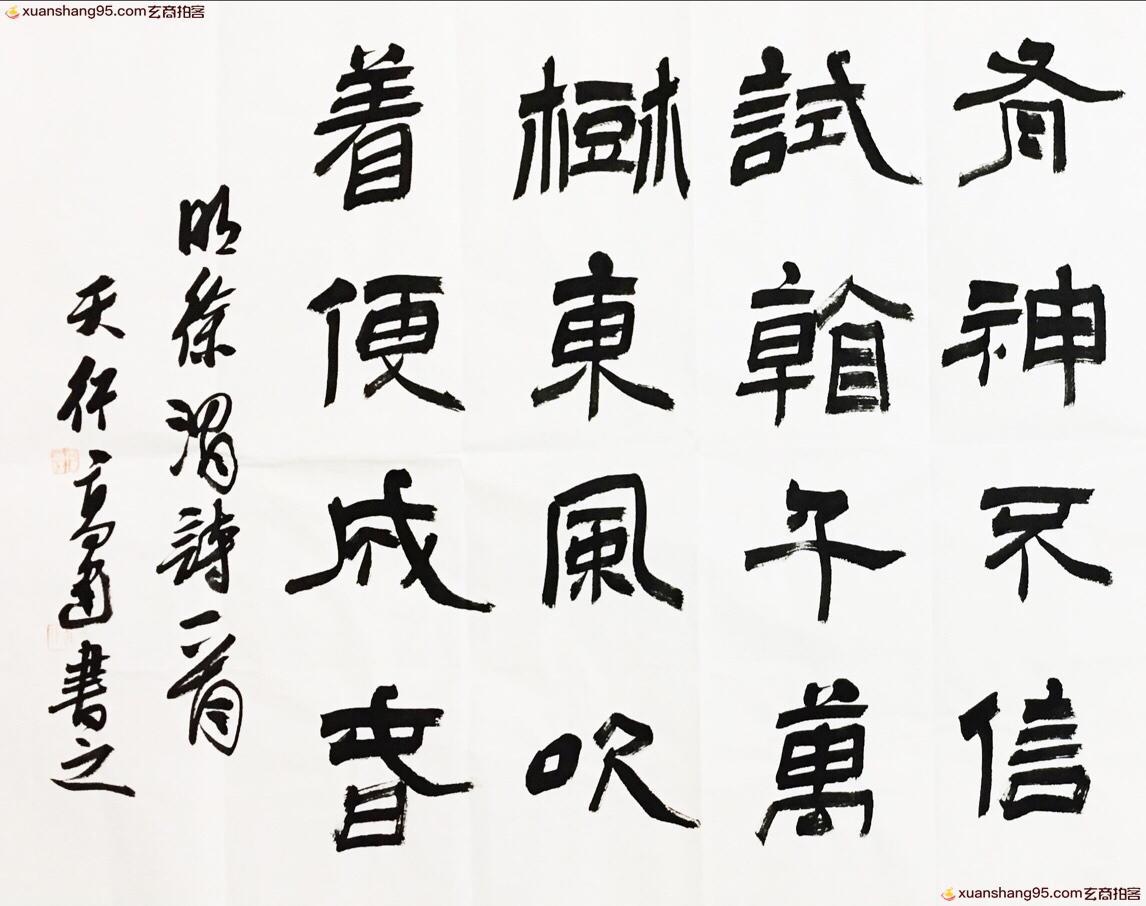 xuanshang95.com玄商拍客
有神不信
試看千萬
樹東風吹
着便成春
明徐渭詩一首
天行高書之
xuanshang95.com玄商拍客